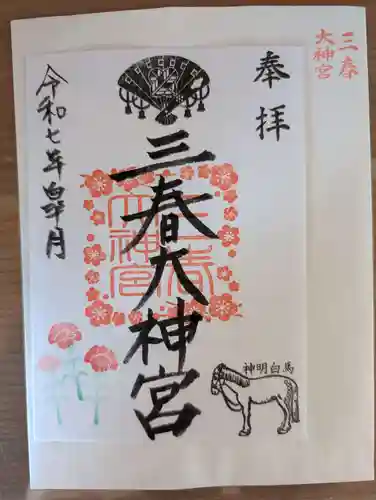 三春
大神宮
奉拝
三春大神宮
三春
大神宮
令和七年皐月
神明白馬